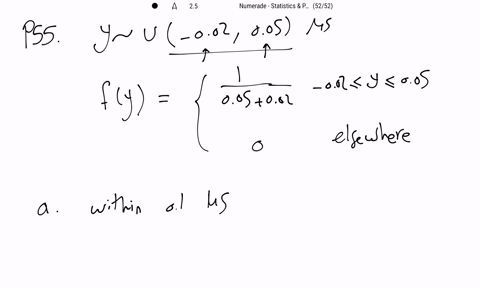 2.5 Numerade - Statistics & P... (52/52)
P55. y ~ U (-0.02, 0.05) μs
f(y) = { 1 / (0.05 + 0.02) -0.02 ≤ y ≤ 0.05
0 elsewhere
a. within 0.1 μs